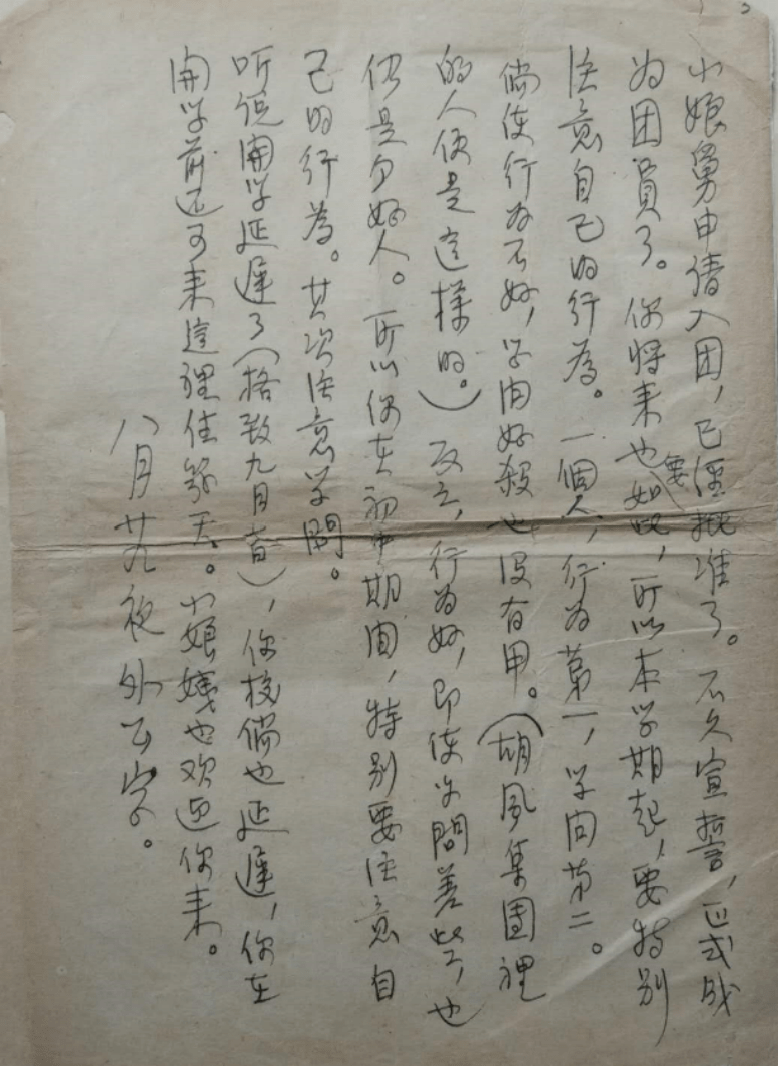 小娘舅申请入团，已經批准了。不久宣誓，正式成
为团員了。你将来也要如此，所以本学期起，要特别
注意自己的行為。一個人，行为第一，学问第二。
倘使行为不好，学问好殺也没有用。（胡风集团裡
的人便是這樣的。）反之，行为好，即使学問差些，也
仍是个好人。所以你在初中期间，特别要注意自
己的行為。其次注意学問。
听说開学延遲了（格致九月首），你校倘也延遲，你在
開学前还可来這裡住幾天。小娘姨也欢迎你来。
八月廿九夜 外公字。